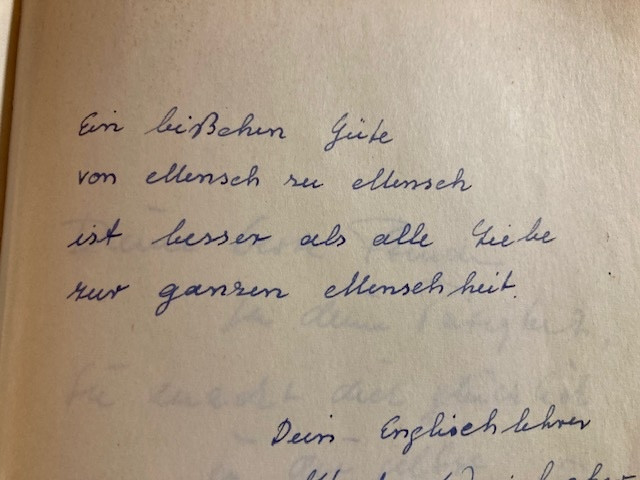 Ein bißchen Güte
von Mensch zu Mensch
ist besser als alle Liebe
zur ganzen Menschheit.
Dein Englischlehrer